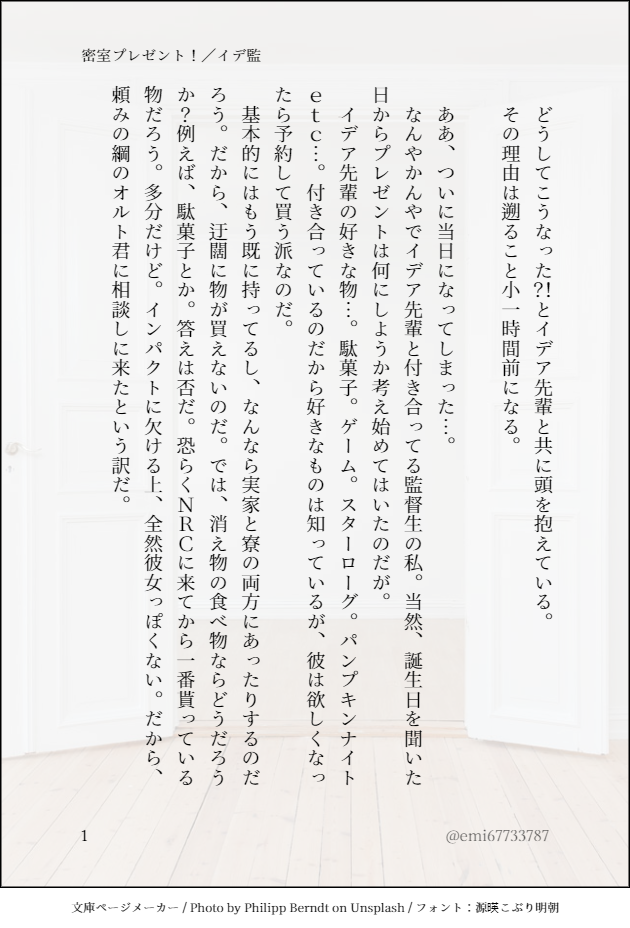 密室プレゼント！／イデ監
どうしてこうなった?!とイデア先輩と共に頭を抱えている。
その理由は遡ること小一時間前になる。
ああ、ついに当日になってしまった…。
なんやかんやでイデア先輩と付き合ってる監督生の私。当然、誕生日を聞いた
日からプレゼントは何にしようか考え始めてはいたのだが。
イデア先輩の好きな物…。駄菓子。ゲーム。スターローグ。パンプキンナイト
ｅｔｃ…。付き合っているのだから好きなものは知っているが、彼は欲しくなっ
たら予約して買う派なのだ。
基本的にはもう既に持ってるし、なんなら実家と寮の両方にあったりするのだ
ろう。だから、迂闊に物が買えないのだ。では、消え物の食べ物ならどうだろう
か？例えば、駄菓子とか。答えは否だ。恐らくＮＲＣに来てから一番貰っている
物だろう。多分だけど。インパクトに欠ける上、全然彼女っぽくない。だから、
頼みの綱のオルト君に相談しに来たという訳だ。
1
@emi67733787
文庫ページメーカー / Photo by Philipp Berndt on Unsplash / フォント：源暎こぶり明朝